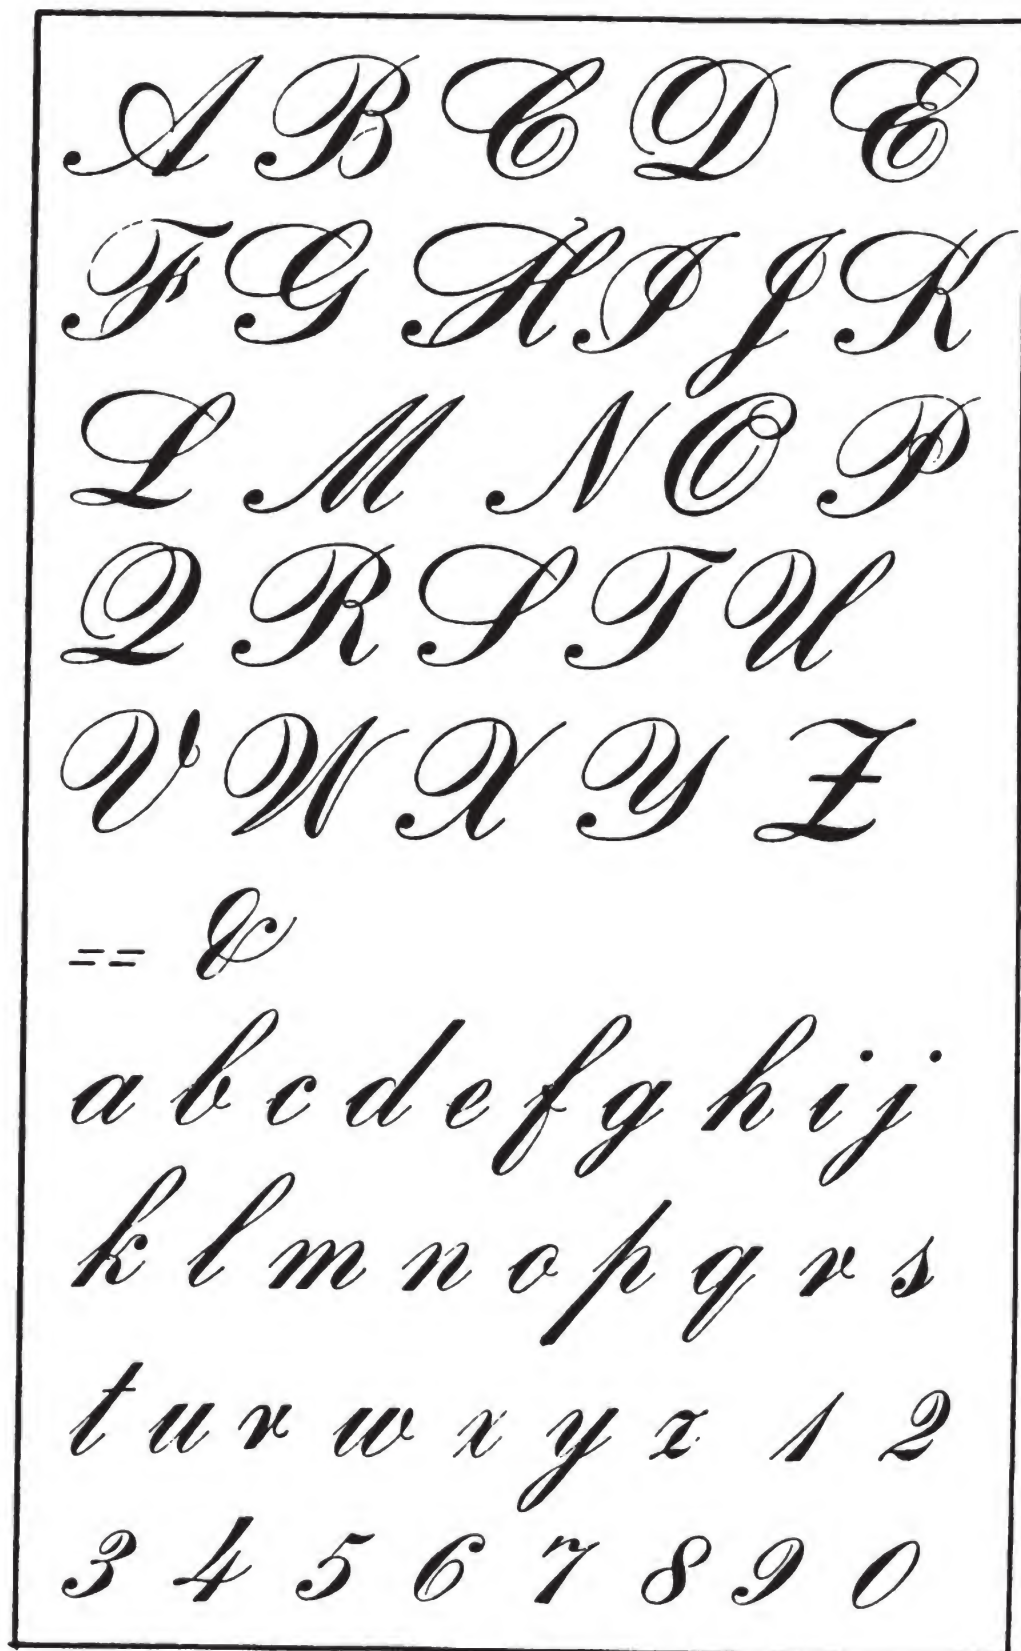 A B C D E
F G H I J K
L M N O P
Q R S T U
V W X Y Z
== &
a b c d e f g h i j
k l m n o p q r s
t u v w x y z 1 2
3 4 5 6 7 8 9 0